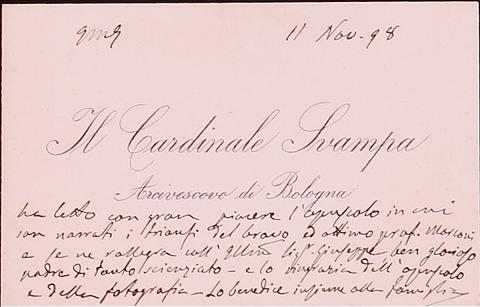 11 Nov. 98
Il Cardinale Svampa
Arcivescovo di Bologna
ha letto con gran piacere l'opuscolo in cui
son narrati i trionfi del bravo ed ottimo prof. Marconi,
e se ne rallegra coll' Illmo Sigr. Giuseppe ben glorioso
padre di tanto scienziato - e lo ringrazia dell'opuscolo
e della fotografia - Lo benedice insieme alla famiglia